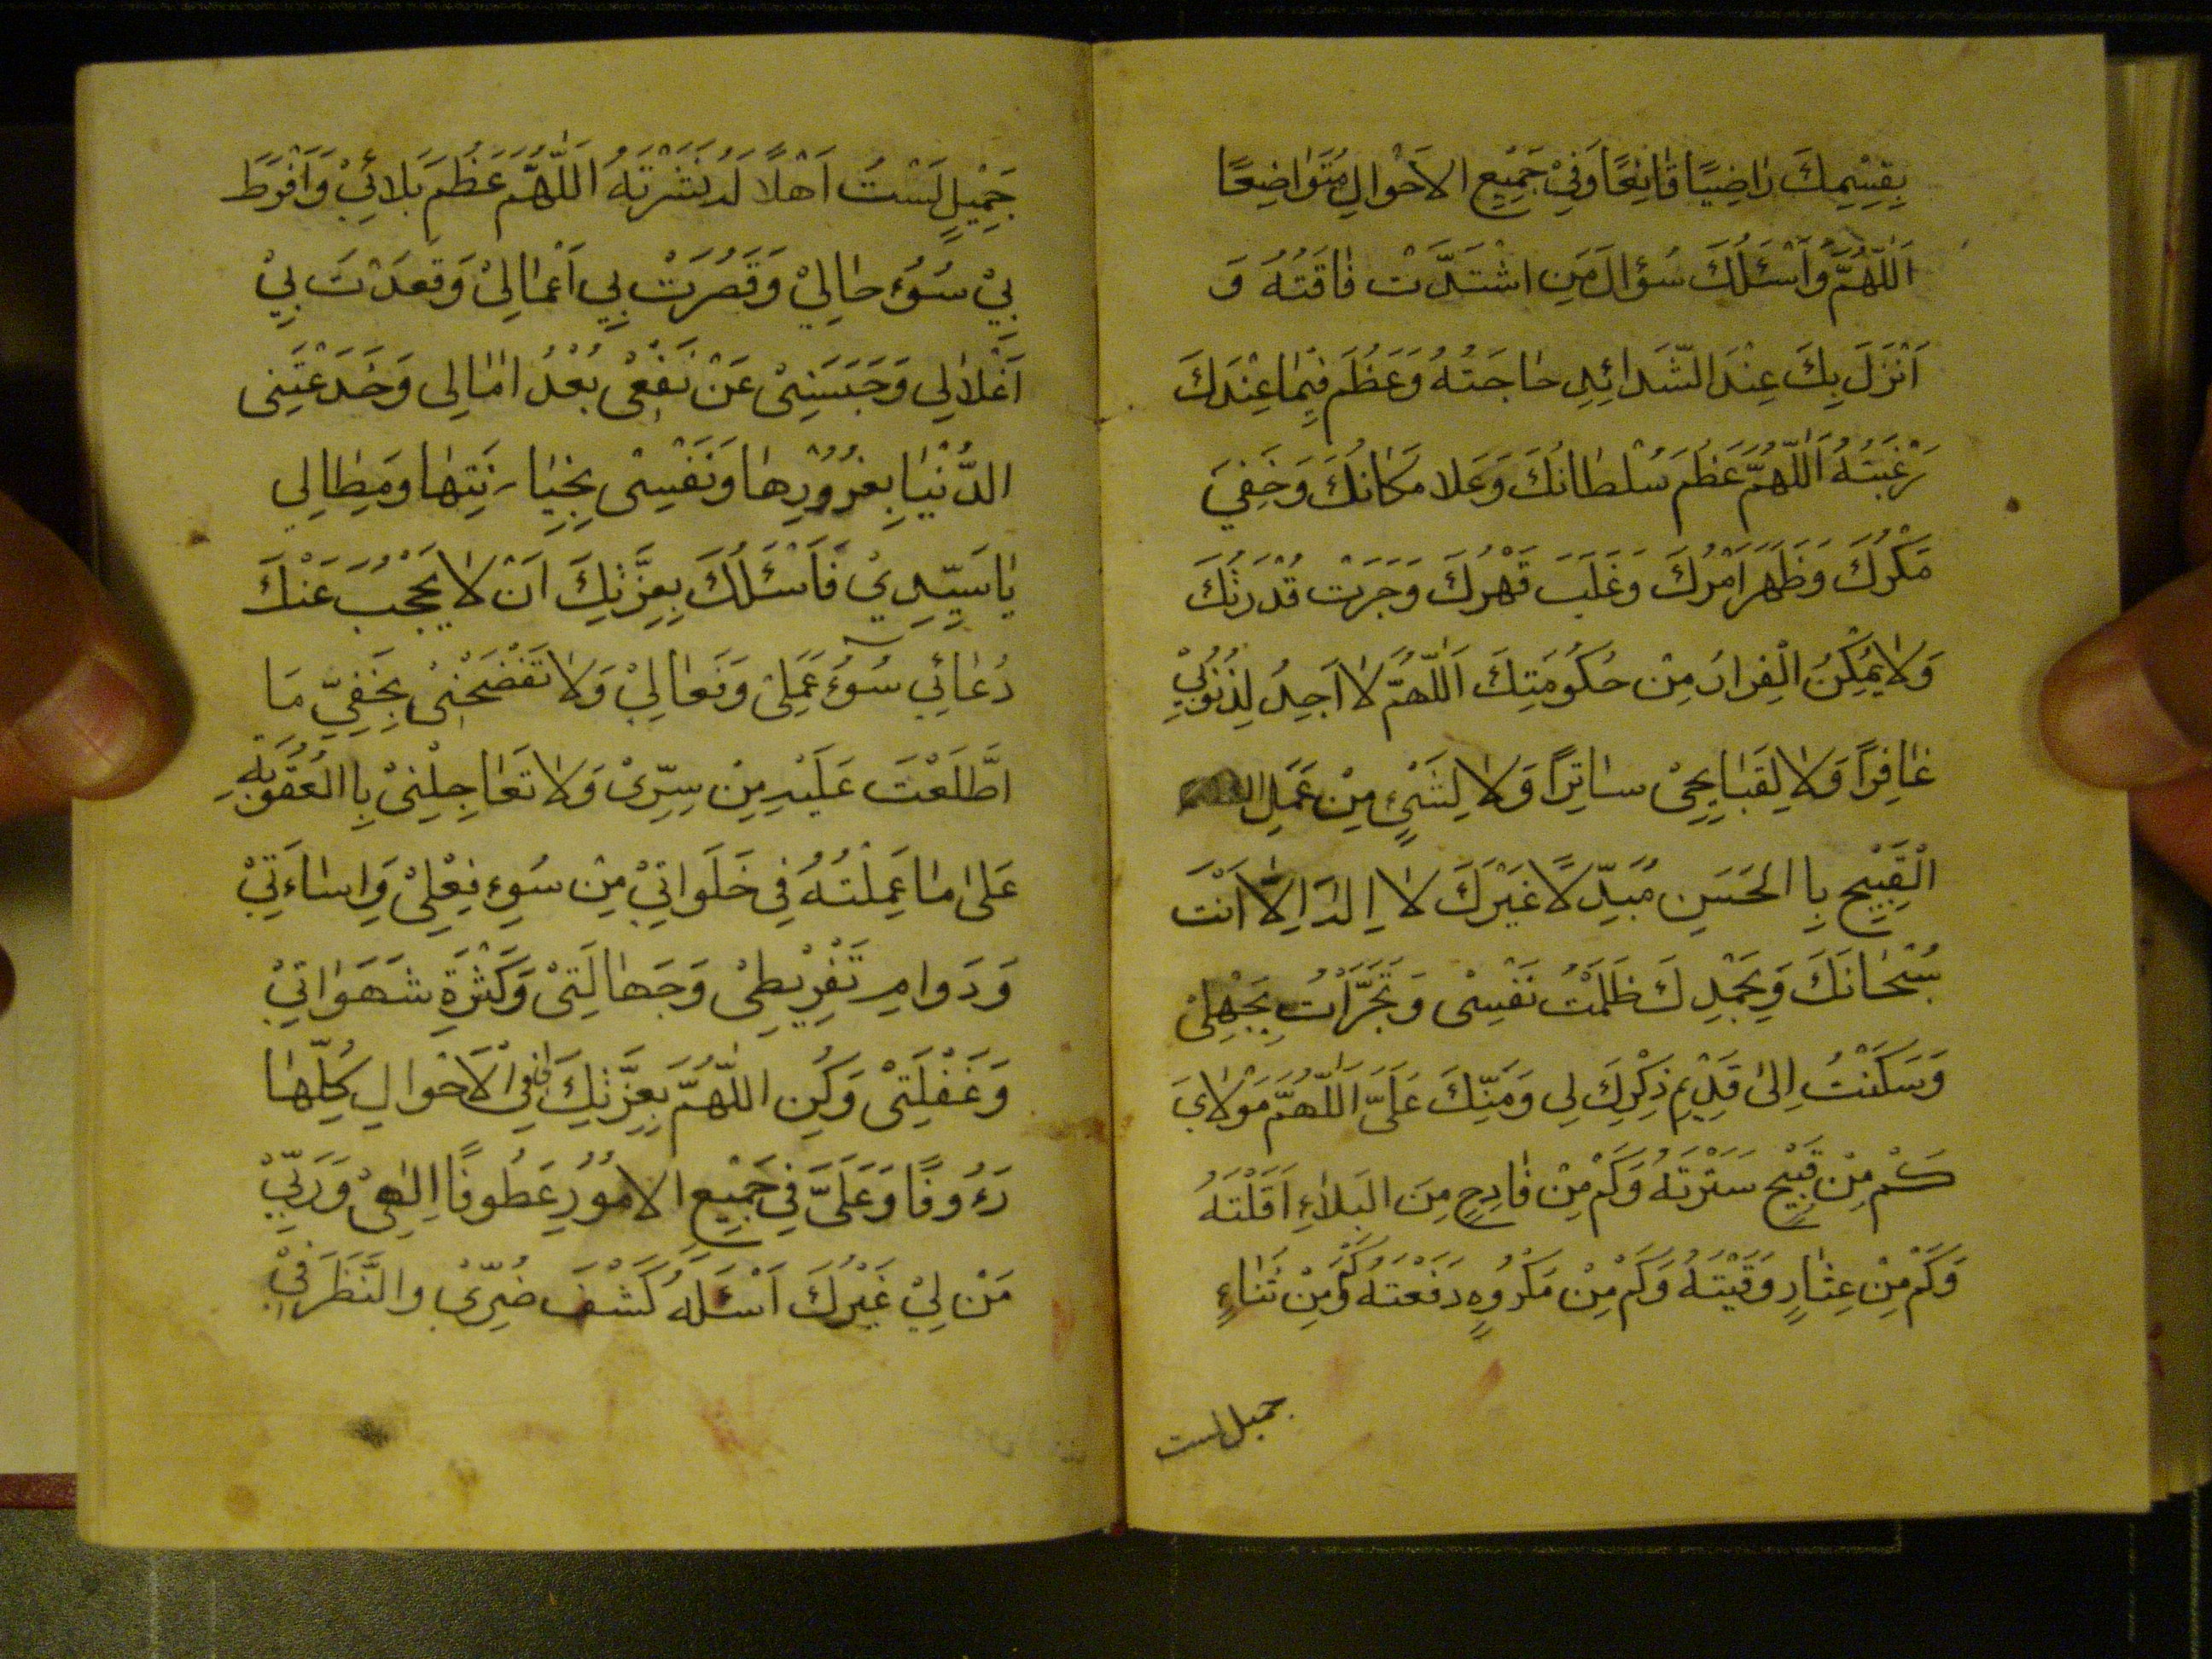 بِقِسْمِكَ رٰاضِيًا قٰانِعًا وَفِيْ جَمِيْعِ الاَحْوٰالِ مُتَوٰاضِعًا
اَللّٰهُمَّ وَاَسْئَلُكَ سُؤٰالَ مَنِ اشْتَدَّتْ فٰاقَتُهُ وَ
اَنْزَلَ بِكَ عِنْدَ الشَّدٰائِدِ حٰاجَتَهُ وَعَظُمَ فِيْمٰا عِنْدَكَ
رَغْبَتُهُ اَللّٰهُمَّ عَظُمَ سُلْطٰانُكَ وَعَلا مَكٰانُكَ وَخَفِيَ
مَكْرُكَ وَظَهَرَ اَمْرُكَ وَغَلَبَ قَهْرُكَ وَجَرَتْ قُدْرَتُكَ
وَلٰا يُمْكِنُ الْفِرٰارُ مِنْ حُكُوْمَتِكَ اَللّٰهُمَّ لٰا اَجِدُ لِذُنُوْبِيْ
غٰافِرًا وَلٰا لِقَبٰايِحِيْ سٰاتِرًا وَلٰا لِشَيْئٍ مِنْ عَمَلِي
الْقَبِيْحِ بِا الحَسَنِ مُبَدِّلًا غَيْرَكَ لٰا اِلٰهَ اِلَّا اَنْتَ
سُبْحٰانَكَ وَبِحَمْدِكَ ظَلَمْتُ نَفْسِيْ وَتَجَرَّأْتُ بِجَهْلِيْ
وَسَكَنْتُ اِلىٰ قَدِيْمِ ذِكْرِكَ لِي وَمَنِّكَ عَلَيَّ اَللّٰهُمَّ مَوْلٰايَ
كَمْ مِنْ قَبِيْحٍ سَتَرْتَهُ وَكَمْ مِنْ فٰادِحٍ مِنَ البَلٰاءِ اَقَلْتَهُ
وَكَمْ مِنْ عِثٰارٍ وَقَيْتَهُ وَكَمْ مِنْ مَكْرُوْهٍ دَفَعْتَهُ وَكَمْ مِنْ ثَنٰاءٍ
جميل لست
جَمِيْلٍ لَسْتُ اَهْلًا لَهُ نَشَرْتَهُ اَللّٰهُمَّ عَظُمَ بَلائِيْ وَاَفْرَطَ
بِيْ سُوْءُ حٰالِيْ وَقَصُرَتْ بِي اَعْمٰالِيْ وَقَعَدَتْ بِيْ
اَغْلٰالِي وَحَبَسَنِيْ عَنْ نَفْعِيْ بُعْدُ اٰمٰالِي وَخَدَعَتْنِي
الدُّنْيٰا بِغُرُوْرِهٰا وَنَفْسِيْ بِخِيٰانَتِهٰا وَمِطٰالِي
يٰا سَيِّدِيْ فَاَسْئَلُكَ بِعِزَّتِكَ اَنْ لٰا يَحْجُبَ عَنْكَ
دُعٰائِي سُوْءُ عَمَلِيْ وَفَعٰالِيْ وَلٰا تَفْضَحْنِيْ بِخَفِيِّ مَا
اطَّلَعْتَ عَلَيْهِ مِنْ سِرِّيْ وَلٰا تُعٰاجِلْنِيْ بِا العُقُوْبَةِ
عَلىٰ مٰا عَمِلْتُهُ فِي خَلَوٰاتِيْ مِنْ سُوْءِ فِعْلِيْ وَاِسٰاءَتِيْ
وَدَوٰامِ تَفْرِيْطِيْ وَجَهٰالَتِيْ وَكَثْرَةِ شَهَوٰاتِيْ
وَغَفْلَتِيْ وَكُنِ اللّٰهُمَّ بِعِزَّتِكَ لِي فِي الْاَحْوٰالِ كُلِّهٰا
رَءُوفًا وَعَلَيَّ فِي جَمِيْعِ الاُمُوْرِ عَطُوفًا اِلٰهِيْ وَرَبِّيْ
مَنْ لِيْ غَيْرُكَ اَسْئَلُهُ كَشْفَ ضُرِّيْ وَالنَّظَرَ فِيْ